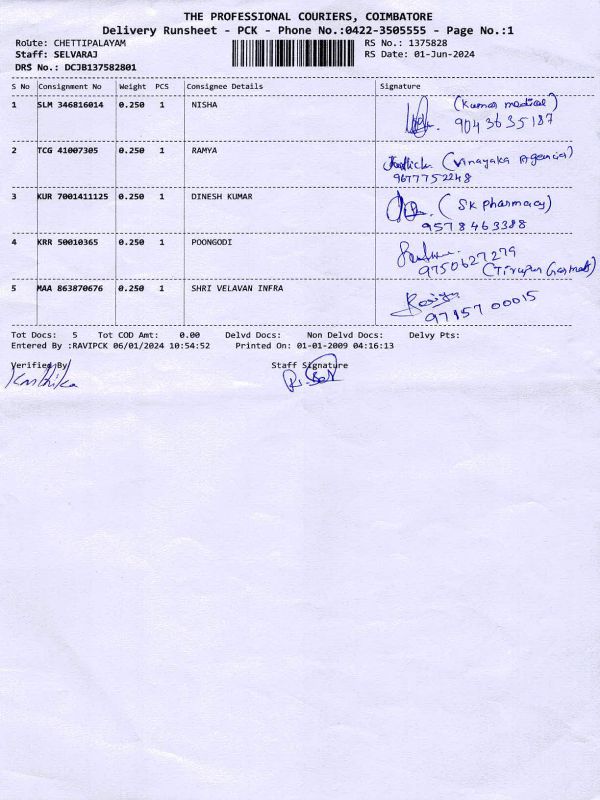 THE PROFESSIONAL COURIERS, COIMBATORE
Delivery Runsheet - PCK - Phone No.:0422-3505555 - Page No.:1
Route: CHETTIPALAYAM RS No.: 1375828
Staff: SELVARAJ RS Date: 01-Jun-2024
DRS No.: DCJB137582801
S No Consignment No Weight PCS Consignee Details Signature
1 SLM 346816014 0.250 1 NISHA (Kumar medical)
9043635187
2 TCG 41007305 0.250 1 RAMYA (Vinayaka Agencis)
9677752248
3 KUR 7001411125 0.250 1 DINESH KUMAR (SK pharmacy)
9578463388
4 KRR 50010365 0.250 1 POONGODI
9750627279
(Tirupur
5 MAA 863870676 0.250 1 SHRI VELAVAN INFRA
97157 00015
Tot Docs: 5 Tot COD Amt: 0.00 Delvd Docs: Non Delvd Docs: Delvy Pts:
Entered By :RAVIPCK 06/01/2024 10:54:52 Printed On: 01-01-2009 04:16:13
Verified By Staff Signature
Karthika